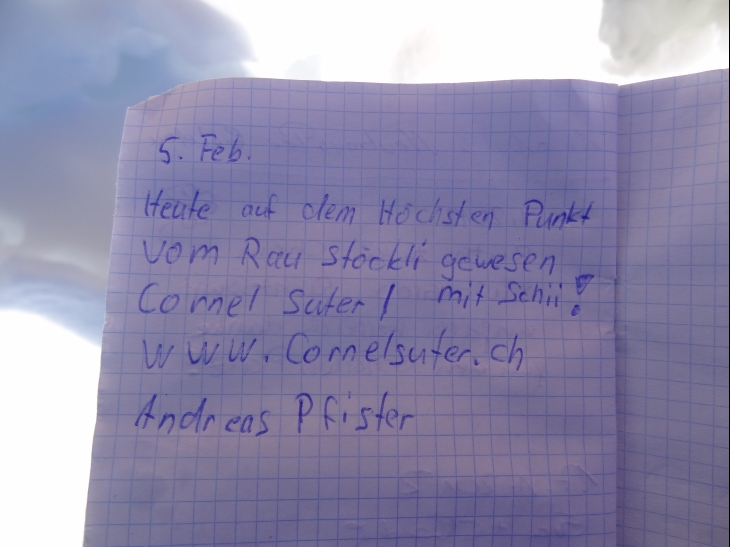 5. Feb.
Heute auf dem Höchsten Punkt
vom Rau Stöckli gewesen
Cornel Suter / mit Schii!
www.Cornelsuter.ch
Andreas Pfister